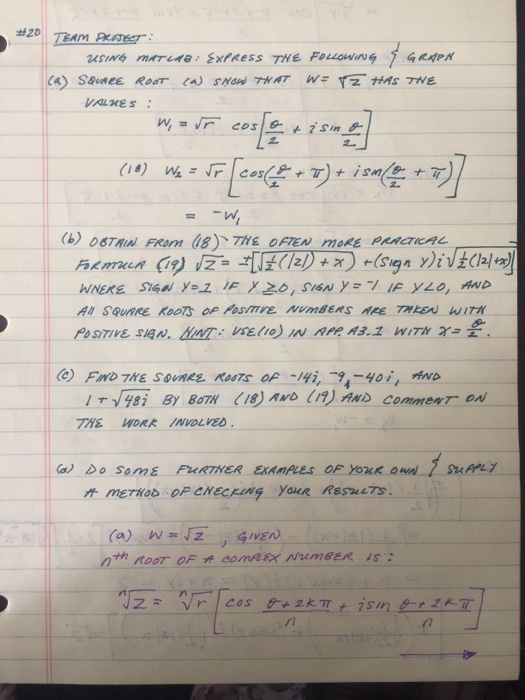 #20 TEAM PROJECT:
USING MATLAB: EXPRESS THE FOLLOWING & GRAPH
(a) SQUARE ROOT (a) SHOW THAT W = √Z HAS THE
VALUES:
W₁ = √r cos[θ/2 + i sin θ/2]
(18) W₂ = √r [cos(θ/2 + π) + i sin(θ/2 + π)]
= -W₁
(b) OBTAIN FROM (18) THE OFTEN MORE PRACTICAL
FORMULA (19) √Z = ±[√½(|Z|) + x) + (sign y) i √½(|Z|+x)]
WHERE SIGN Y=1 IF Y ≥0, SIGN Y = -1 IF Y<0, AND
All SQUARE ROOTS OF POSITIVE NUMBERS ARE TAKEN WITH
POSITIVE SIGN. HINT: USE (10) IN APP. A3.1 WITH X = θ/2.
(C) FIND THE SQUARE ROOTS OF -14i, -9, -40i, AND
1 + √48i BY BOTH (18) AND (19) AND COMMENT ON
THE WORK INVOLVED.
(d) DO SOME FURTHER EXAMPLES OF YOUR OWN & SUPPLY
A METHOD OF CHECKING YOUR RESULTS.
(a) W = √Z, GIVEN
nth ROOT OF A COMPLEX NUMBER IS:
ⁿ√Z = ⁿ√r [cos θ+2kπ/n + i sin θ+2kπ/n]